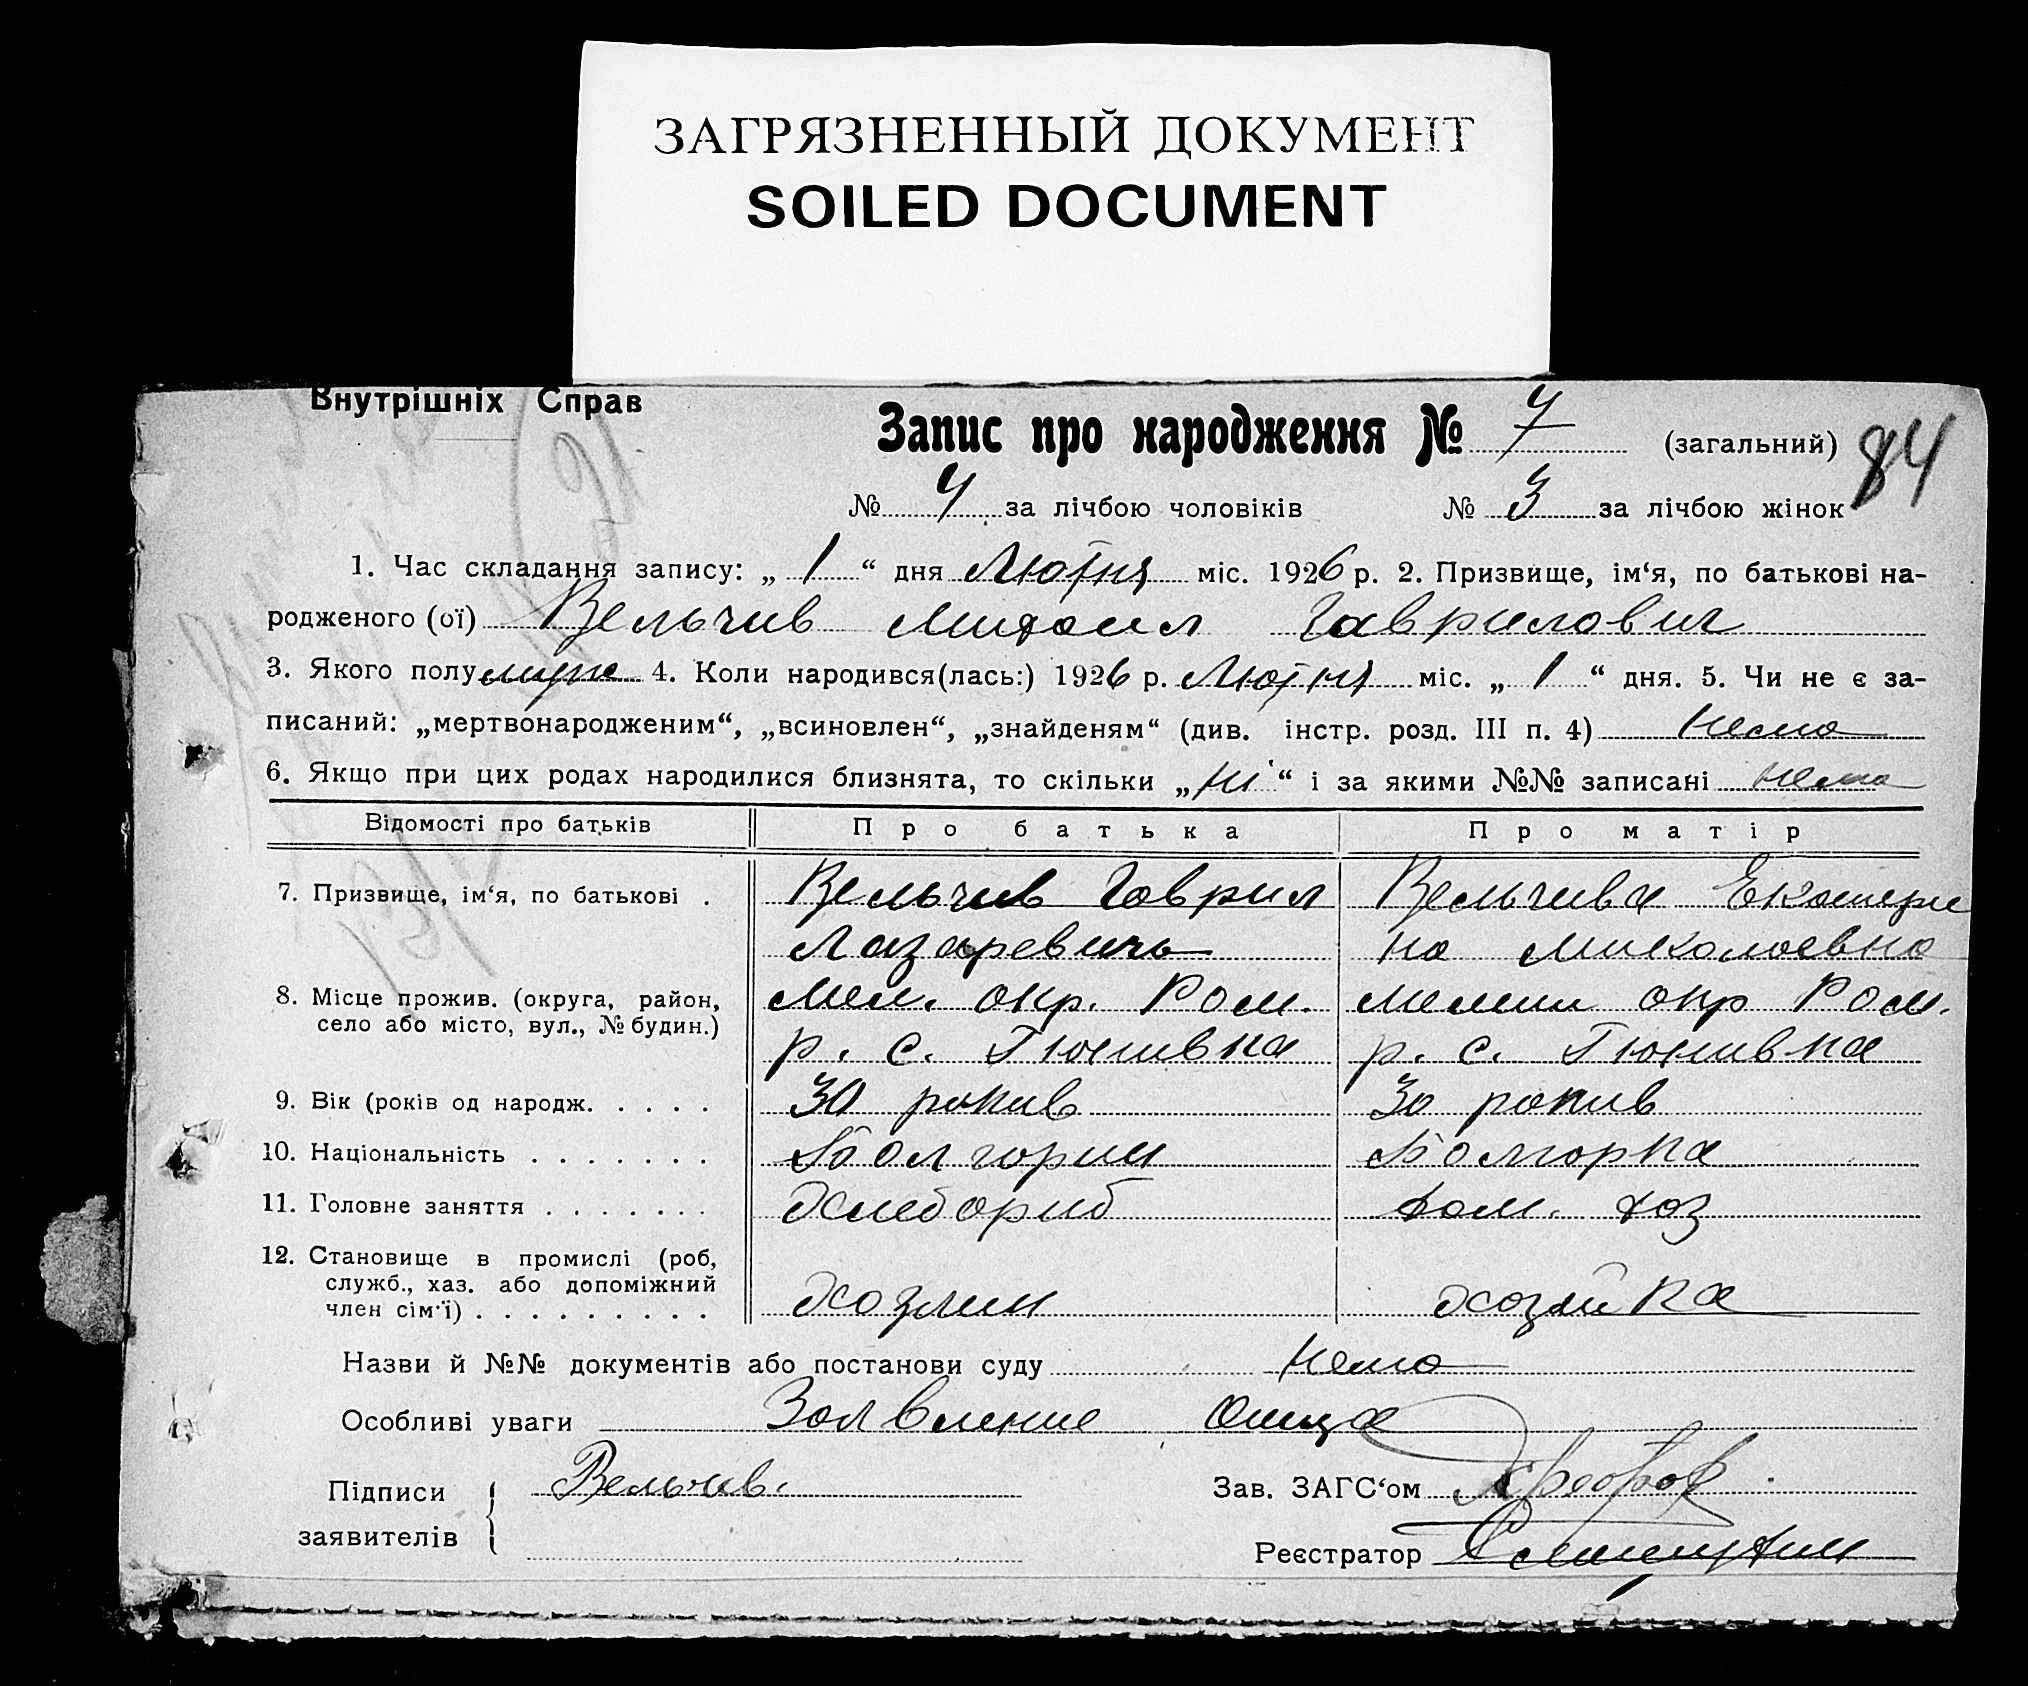 ЗАГРЯЗНЕННЫЙ ДОКУМЕНТ
SOILED DOCUMENT
Внутрішніх Справ
Запис про народження № 7 (загальний) 84
№ 4 за лічбою чоловіків № 3 за лічбою жінок
1. Час складання запису: „ 1 “ дня Лютня міс. 1926 р. 2. Призвище, ім‘я, по батькові на-
родженого (ої) Вельчив Михаил Гаврилович
3. Якого полу муж 4. Коли народився(лась:) 1926 р. Лютня міс. „ 1 “ дня. 5. Чи не є за-
писаний: „мертвонародженим“, „всиновлен“, „знайденям“ (див. інстр. розд. III п. 4) нема
6. Якщо при цих родах народилися близнята, то скільки „ ні “ і за якими №№ записані нема
Відомості про батьків Про батька Про матір
7. Призвище, ім‘я, по батькові . Вельчив Гаврил Вельчива Екатери
Лазаревичь на Миколаевна
8. Місце прожив. (округа, район, Мел. окр. Ром. Мелит окр Ром.
село або місто, вул., № будин.) р. с. Гюнивка р. с. Гюнивка
9. Вік (років од народж. . . . . 30 рокив 30 рокив
10. Національність . . . . . . . Болгорин Болгорка
11. Головне заняття . . . . . . . Хлебориб дом. хоз
12. Становище в промислі (роб,
служб., хаз. або допоміжний
член сім‘ї) . . . . . . . . . Хозяин хозяйка
Назви й №№ документів або постанови суду нема
Особливі уваги Заявление Отца
Підписи Вельчив. Зав. ЗАГС‘ом
заявителів Реєстратор